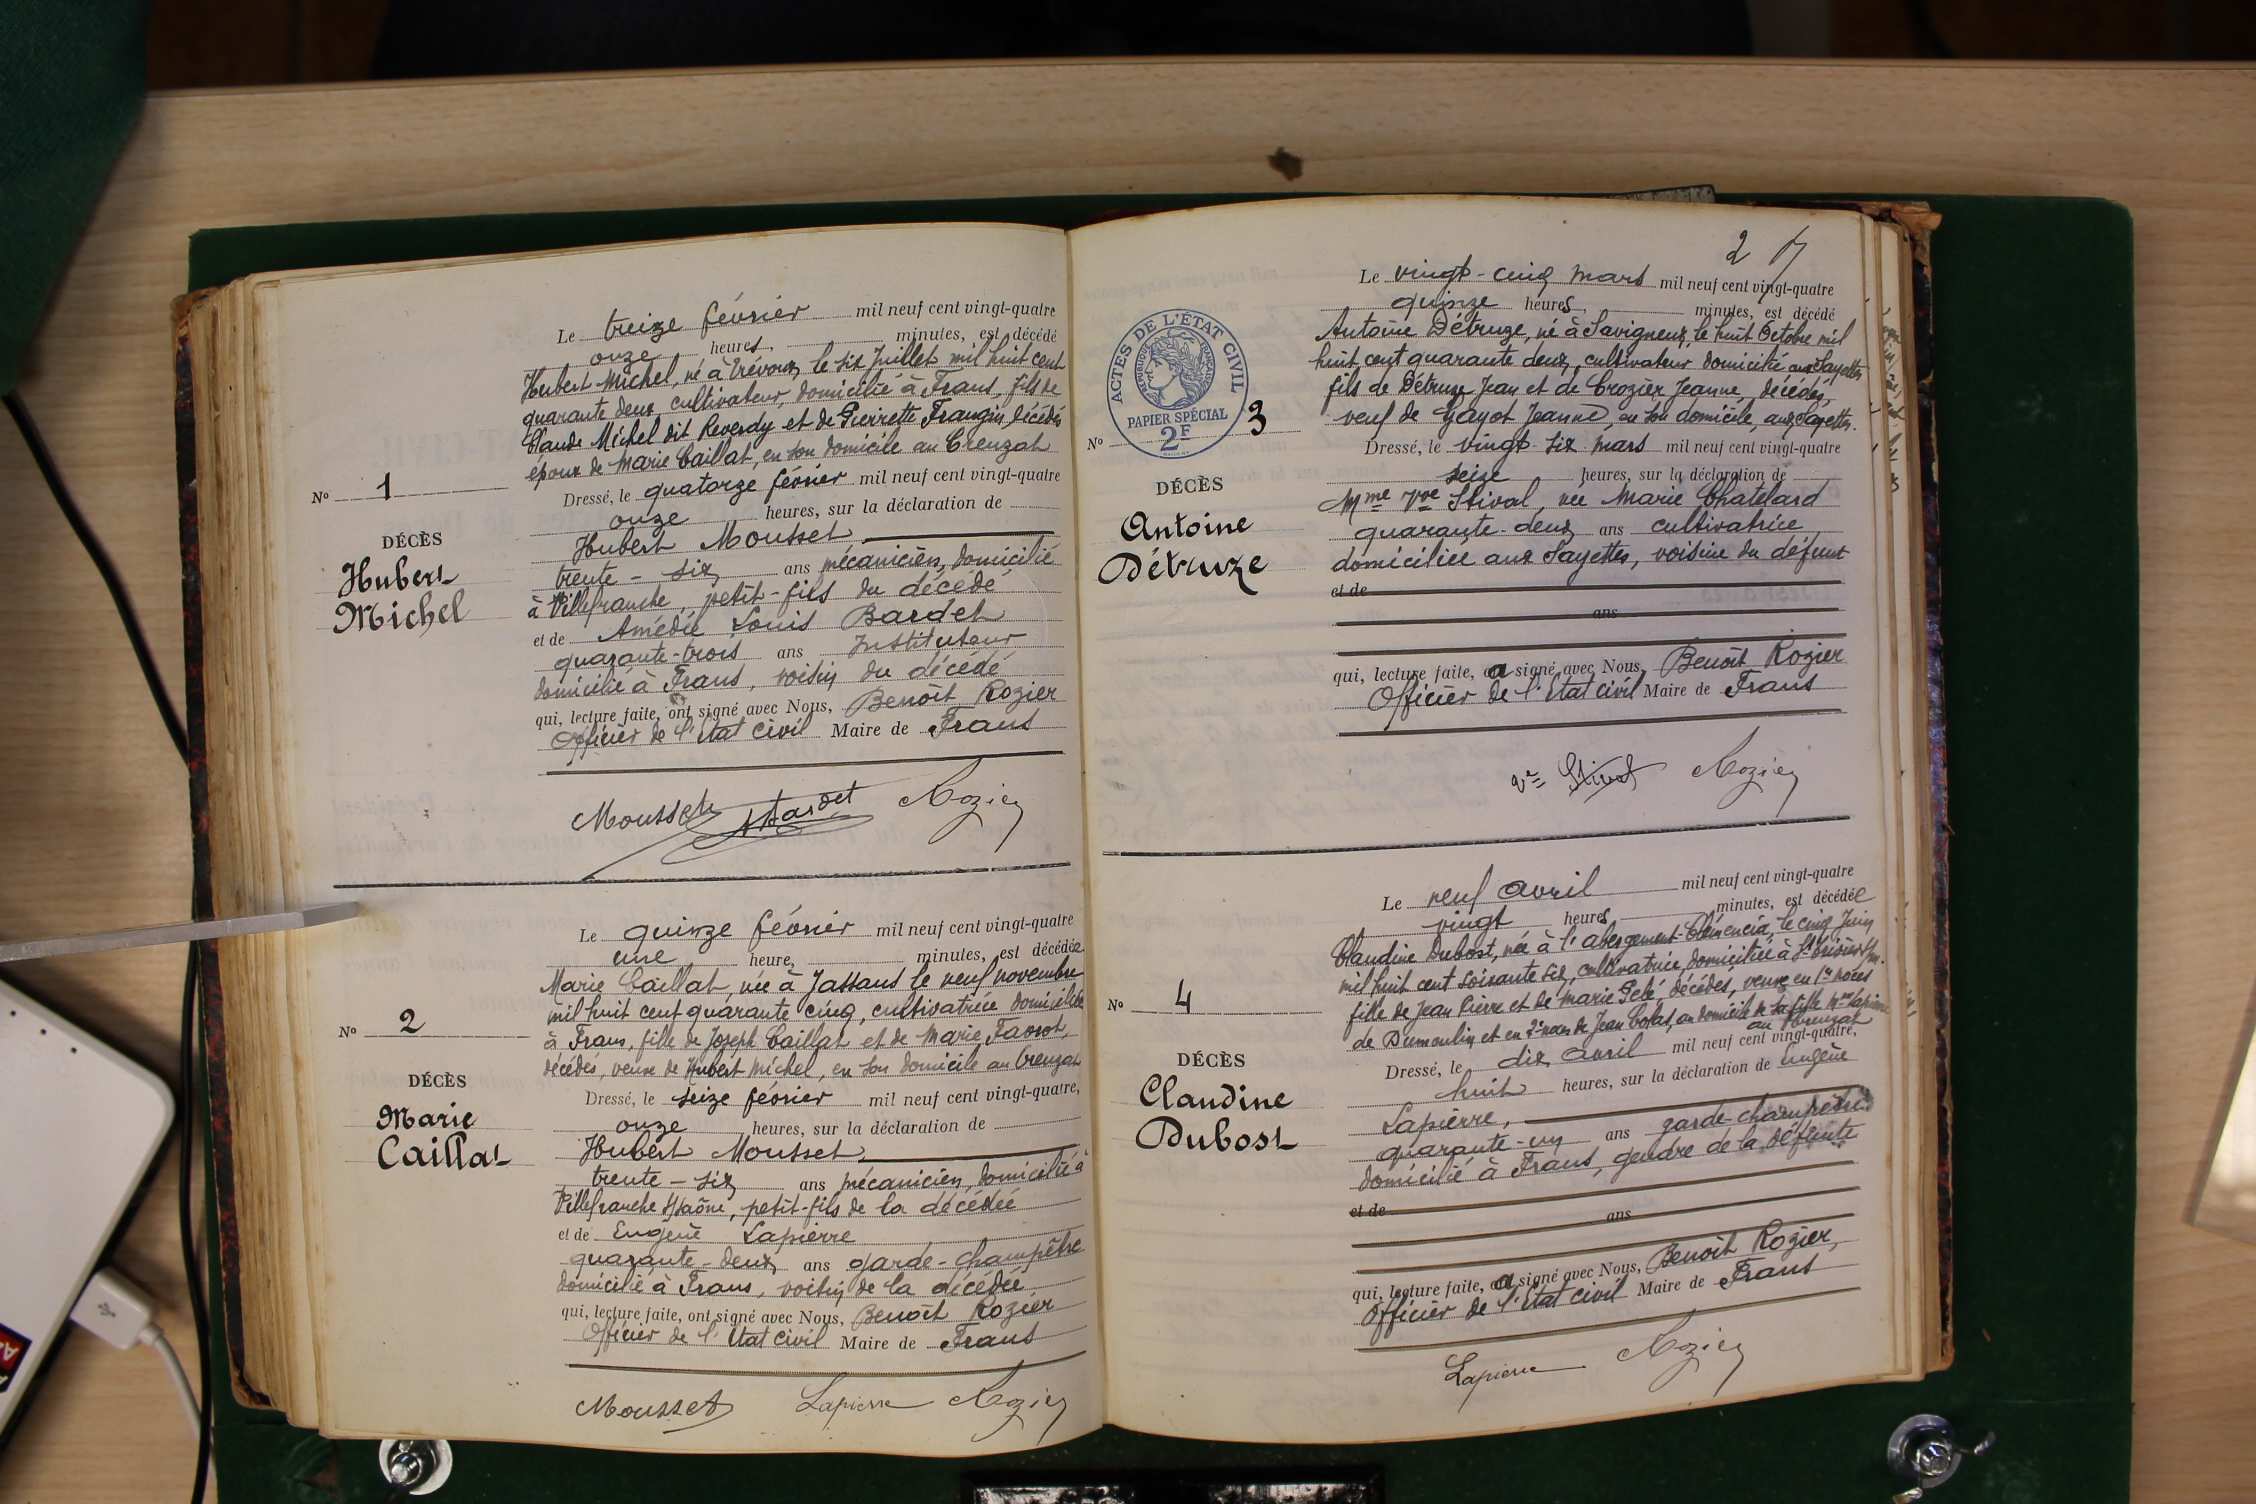 N° 1
DÉCÈS
Hubert
Michel
Le treize février mil neuf cent vingt-quatre
onze heures, minutes, est décédé
Hubert Michel, né à Trévoux, le six Juillet mil huit cent
quarante deux, cultivateur, domicilié à Frans, fils de
Claude Michel dit Reverdy et de Pierrette Frangin décédés
époux de Marie Caillat, en son domicile au Creuzat
Dressé, le quatorze février mil neuf cent vingt-quatre
onze heures, sur la déclaration de
Hubert Mousset
trente-six ans mécanicien, domicilié
à Villefranche, petit-fils du décédé
et de Amédée Louis Bardet
quarante-trois ans Instituteur
domicilié à Frans, voisin du décédé
qui, lecture faite, ont signé avec Nous, Benoît Rozier
Officier de l'Etat civil Maire de Frans
Mousset Bardet Rozier
N° 2
DÉCÈS
Marie
Caillat
Le quinze février mil neuf cent vingt-quatre
une heure, minutes, est décédée
Marie Caillat, née à Jassans le neuf novembre
mil huit cent quarante cinq, cultivatrice domiciliée
à Frans, fille de Joseph Caillat et de Marie
décédés, veuve de Hubert Michel, en son domicile au Creuzat
Dressé, le seize février mil neuf cent vingt-quatre,
onze heures, sur la déclaration de
Hubert Mousset
trente-six ans mécanicien, domicilié à
Villefranche s/Saône, petit-fils de la décédée
et de Eugène Lapierre
quarante-deux ans garde-champêtre
domicilié à Frans, voisin de la décédée
qui, lecture faite, ont signé avec Nous, Benoît Rozier
Officier de l'Etat civil Maire de Frans
Mousset Lapierre Rozier
2
ACTES DE L'ÉTAT CIVIL
RÉPUBLIQUE FRANÇAISE
PAPIER SPÉCIAL
2F
N° 3
DÉCÈS
Antoine
Détruze
Le vingt-cinq mars mil neuf cent vingt-quatre
quinze heures, minutes, est décédé
Antoine Détruze, né à Savigneux, le huit Octobre mil
huit cent quarante deux, cultivateur domicilié aux Fayettes
fils de Détruze Jean et de Crozier Jeanne, décédés,
veuf de Gayot Jeanne, en son domicile, aux Fayettes.
Dressé, le vingt-six mars mil neuf cent vingt-quatre
seize heures, sur la déclaration de
Mme Vve Stival, née Marie Chatelard
quarante-deux ans cultivatrice
domiciliée aux Fayettes, voisine du défunt
et de
ans
qui, lecture faite, a signé avec Nous, Benoît Rozier
Officier de l'Etat civil Maire de Frans
Ve Stival Rozier
N° 4
DÉCÈS
Claudine
Dubost
Le neuf avril mil neuf cent vingt-quatre
vingt heures minutes, est décédée
Claudine Dubost, née à l'abergement-Clémencia, le cinq Juin
mil huit cent soixante six, cultivatrice, domiciliée à St
fille de Jean Pierre et de Marie décédés, veuve en 1res noces
de Dumoulin et en 2es noces de Jean Colas, au domicile de sa fille Mme Lapierre
au Creuzat
Dressé, le dix avril mil neuf cent vingt-quatre,
huit heures, sur la déclaration de Eugène
Lapierre,
quarante-un ans garde-champêtre
domicilié à Frans, gendre de la défunte
et de
ans
qui, lecture faite, a signé avec Nous, Benoît Rozier,
Officier de l'Etat civil Maire de Frans
Lapierre Rozier